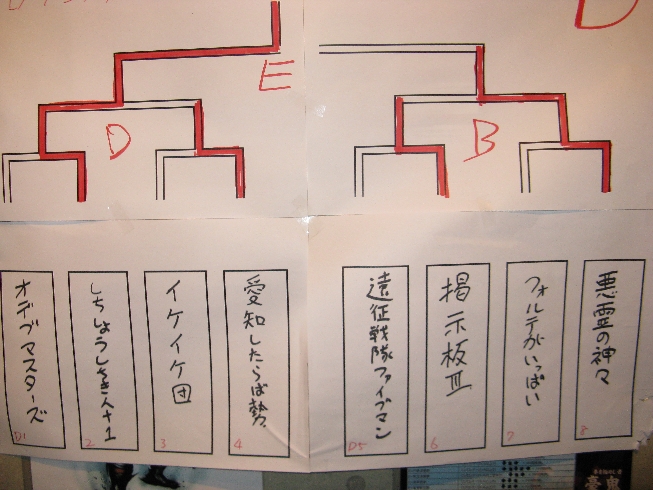 D
E
D
B
オデブマスターズ
D1
しちしょうしさき人+1
2
イケイケ団
3
愛知したらば勢
4
遠征戦隊ファイブマン
D5
掲示板Ⅲ
6
フォルテがいっぱい
7
悪霊の神々
8